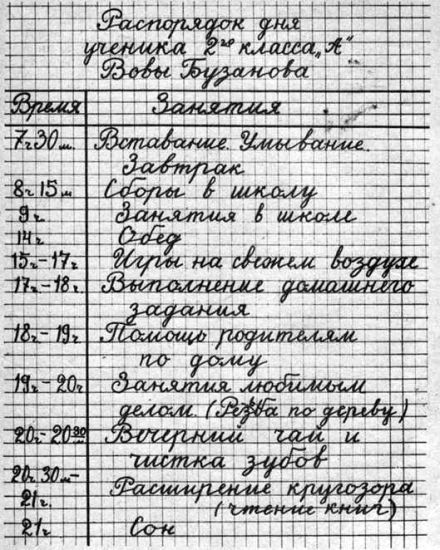 Распорядок дня
ученика 2го класса „А"
Вовы Бузанова
Время Занятия
7ч 30м. Вставание. Умывание.
Завтрак
8ч 15м Сборы в школу
9ч. Занятия в школе
14ч. Обед
15ч-17ч Игры на свежем воздухе
17ч-18ч. Выполнение домашнего
задания
18ч-19ч Помощь родителям
по дому
19ч-20ч Занятия любимым
делом. (Резьба по дереву)
20ч-20 30 Вечерний чай и
чистка зубов
20ч.30м- Расширение кругозора
21ч. (чтение книг)
21ч Сон